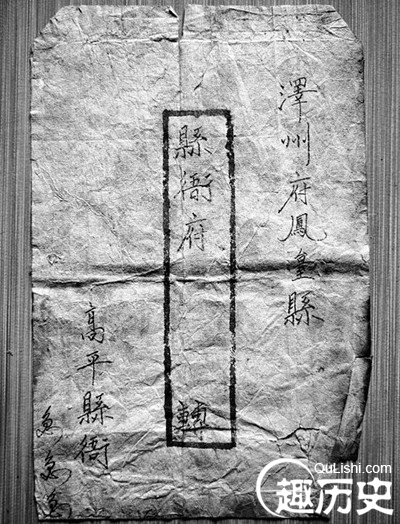 澤州府鳳臺縣
縣衙府 轉
高平縣衙
急急急
QuLishi.com
趣历史